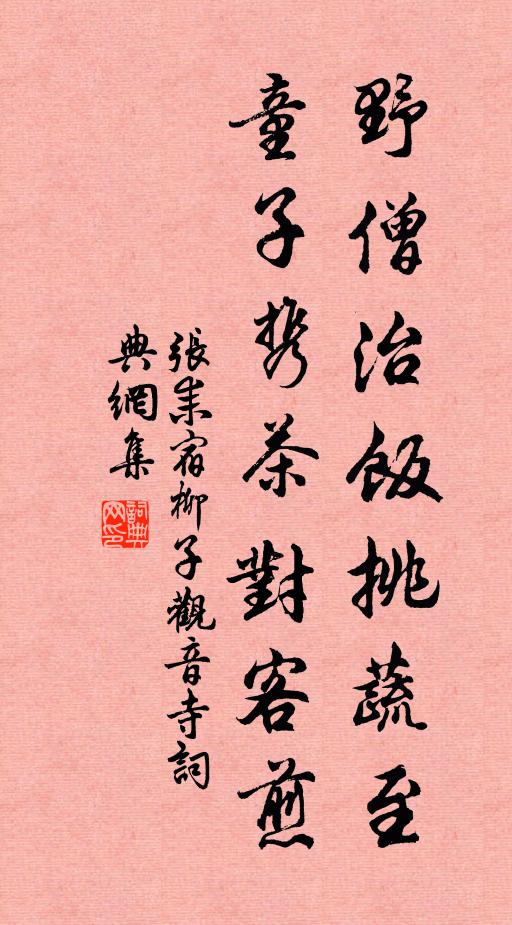 野僧治飯挑蔬至
童子携茶對客煎
張耒宿柳子觀音寺詞
典網集
詞典網印